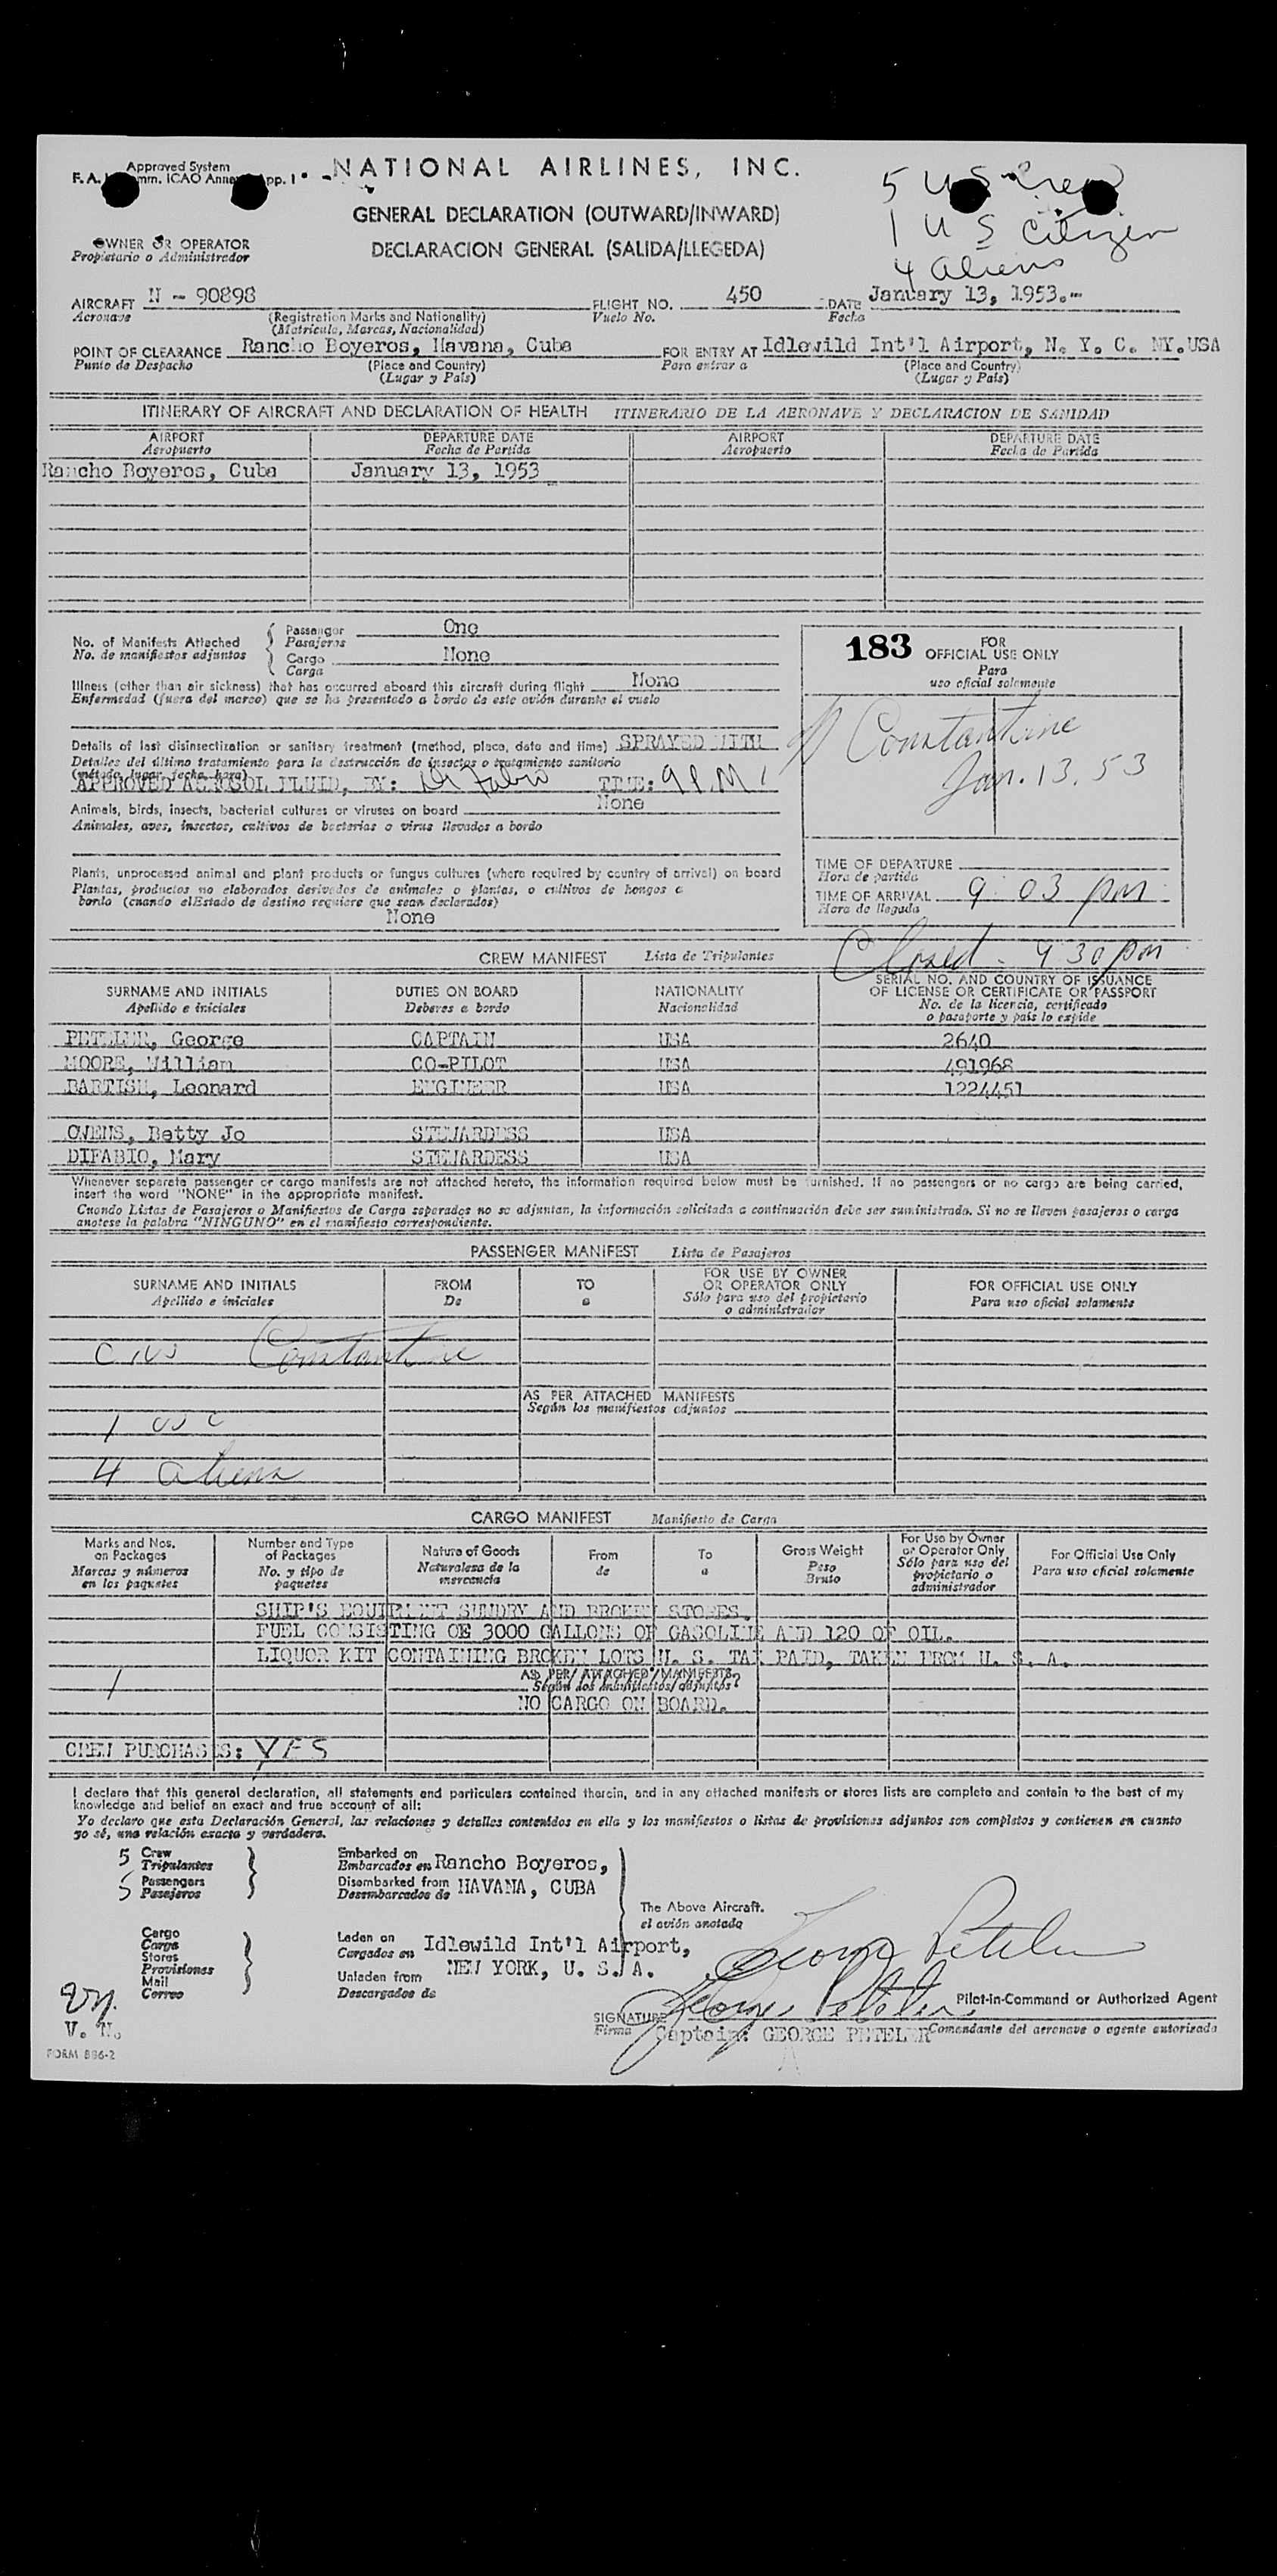 Approved System
NATIONAL AIRLINES, INC.
5 US Crew
GENERAL DECLARATION (OUTWARD/INWARD)
1 US Citizen
OWNER OR OPERATOR
Propietario o Administrador
DECLARACION GENERAL (SALIDA/LLEGEDA)
4 aliens
AIRCRAFT N - 90898 FLIGHT NO. 450 DATE January 13, 1953.-
Aeronave (Registration Marks and Nationality) Vuelo No. Fecha
(Matricula, Marcas, Nacionalidad)
POINT OF CLEARANCE Rancho Boyeros, Havana, Cuba FOR ENTRY AT Idlewild Int'l Airport, N. Y. C. NY.USA
Punto de Despacho (Place and Country) Para entrar a (Place and Country)
(Lugar y País) (Lugar y País)
ITINERARY OF AIRCRAFT AND DECLARATION OF HEALTH ITINERARIO DE LA AERONAVE Y DECLARACION DE SANIDAD
AIRPORT DEPARTURE DATE AIRPORT DEPARTURE DATE
Aeropuerto Fecha de Partida Aeropuerto Fecha de Partida
Rancho Boyeros, Cuba January 13, 1953
No. of Manifests Attached
No. de manifiestos adjuntos
Passenger One
Pasajeros
Cargo None
Carga
183 FOR
OFFICIAL USE ONLY
Para
uso oficial solamente
Illness (other than air sickness) that has occurred aboard this aircraft during flight None
Enfermedad (fuera del mareo) que se ha presentado a bordo de este avión durante el vuelo
Constantine
Jan. 13, 53
Details of last disinsectization or sanitary treatment (method, place, date and time) SPRAYED WITH
Detalles del último tratamiento para la destrucción de insectos o tratamiento sanitario
(método, lugar, fecha, hora)
APPROVED AEROSOL FLUID, BY: Di Fabio TIME: 9 P.M.
Animals, birds, insects, bacterial cultures or viruses on board None
Animales, aves, insectos, cultivos de bacterias o virus llevados a bordo
Plants, unprocessed animal and plant products or fungus cultures (where required by country of arrival) on board
Plantas, productos no elaborados derivados de animales o plantas, o cultivos de hongos a
bordo (cuando elEstado de destino requiere que sean declarados)
None
TIME OF DEPARTURE
Hora de partida
TIME OF ARRIVAL 9 03 pm
Hora de llegada
Closed - 9 30 pm
CREW MANIFEST Lista de Tripulantes
SURNAME AND INITIALS DUTIES ON BOARD NATIONALITY SERIAL NO. AND COUNTRY OF ISSUANCE
OF LICENSE OR CERTIFICATE OR PASSPORT
Apellido e iniciales Deberes a bordo Nacionalidad No. de la licencia, certificado
o pasaporte y país lo expide
PETELER, George CAPTAIN USA 2640
MOORE, William CO-PILOT USA 491968
BARTISH, Leonard ENGINEER USA 1224451
OWENS, Betty Jo STEWARDESS USA
DIFABIO, Mary STEWARDESS USA
Whenever separate passenger or cargo manifests are not attached hereto, the information required below must be furnished. If no passengers or no cargo are being carried,
insert the word "NONE" in the appropriate manifest.
Cuando Listas de Pasajeros o Manifiestos de Carga separados no se adjuntan, la información solicitada a continuación debe ser suministrada. Si no se lleven pasajeros o carga
anotese la palabra "NINGUNO" en el manifiesto correspondiente.
PASSENGER MANIFEST Lista de Pasajeros
SURNAME AND INITIALS FROM TO FOR USE BY OWNER
OR OPERATOR ONLY FOR OFFICIAL USE ONLY
Apellido e iniciales De a Sólo para uso del propietario
o administrador Para uso oficial solamente
Constantine
AS PER ATTACHED MANIFESTS
Según los manifiestos adjuntos
1 USC
4 aliens
CARGO MANIFEST Manifiesto de Carga
Marks and Nos.
on Packages
Marcas y números
en los paquetes
Number and Type
of Packages
No. y tipo de
paquetes
Nature of Goods
Naturalesa de la
mercancia
From
de
To
a
Gross Weight
Peso
Bruto
For Use by Owner
or Operator Only
Sólo para uso del
propietario o
administrador
For Official Use Only
Para uso oficial solamente
SHIP'S EQUIPMENT SUNDRY AND BROKEN STORES.
FUEL CONSISTING OF 3000 GALLONS OF GASOLINE AND 120 OF OIL.
LIQUOR KIT CONTAINING BROKEN LOTS U. S. TAX PAID, TAKEN FROM U. S. A.
AS PER ATTACHED MANIFESTS
Según los manifiestos adjuntos
NO CARGO ON BOARD.
CREW PURCHASES: YES
I declare that this general declaration, all statements and particulars contained therein, and in any attached manifests or stores lists are complete and contain to the best of my
knowledge and belief an exact and true account of all:
Yo declaro que esta Declaración General, las relaciones y detalles contenidos en ella y los manifiestos o listas de provisiones adjuntos son completos y contienen en cuanto
yo sé, una relación exacta y verdadera.
5 Crew
Tripulantes
5 Passengers
Pasajeros
Embarked on
Embarcados en Rancho Boyeros,
Disembarked from
Desembarcados de HAVANA, CUBA
The Above Aircraft.
el avión anotado
Cargo
Carga
Stores
Provisiones
Mail
Correo
Laden on
Cargados en Idlewild Int'l Airport,
NEW YORK, U. S. A.
Unladen from
Descargados de
George Peteler
George Peteler
Pilot-in-Command or Authorized Agent
SIGNATURE
Firma Captain: GEORGE PETELER Comandante del aeronave o agente autorizado
FORM 886-2